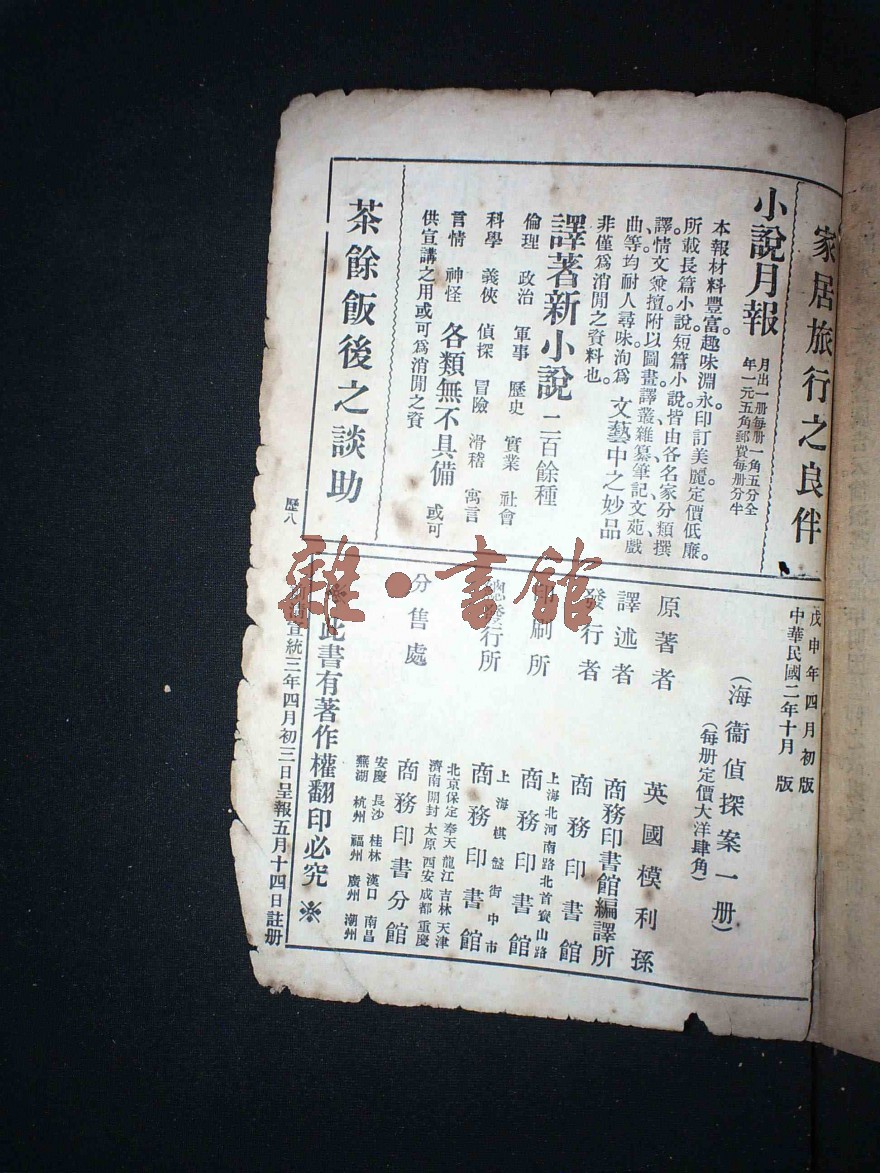 家居旅行之良伴
小說月報
月出一册每册一角五分全
年一元五角郵費每册分半
本報材料豐富趣味淵永印訂美麗定價低廉。
所載長篇小說短篇小說皆由各名家分類撰
譯情文兼擅附以圖畫譯叢雜纂筆記文苑戲
曲等均耐人尋味洵爲文藝中之妙品
非僅爲消閒之資料也
譯著新小說二百餘種
倫理 政治 軍事 歷史 實業 社會
科學 義俠 偵探 冒險 滑稽 寓言
言情 神怪 各類無不具備 或可
供宣講之用或可爲消閒之資
茶餘飯後之談助
歷八
戊申年四月初版
中華民國二年十月 版
(海衞偵探案一册)
(每册定價大洋肆角)
原著者 英國模利孫
譯述者 商務印書館編譯所
發行者 商務印書館
上海北河南路北首寳山路
印刷所 商務印書館
上海棋盤街中市
總發行所 商務印書館
北京保定奉天龍江吉林天津
濟南開封太原西安成都重慶
分售處 商務印書分館
安慶 長沙 桂林 漢口 南昌
蕪湖 杭州 福州 廣州 潮州
此書有著作權翻印必究※
宣統三年四月初三日呈報五月十四日註册
雜·書館